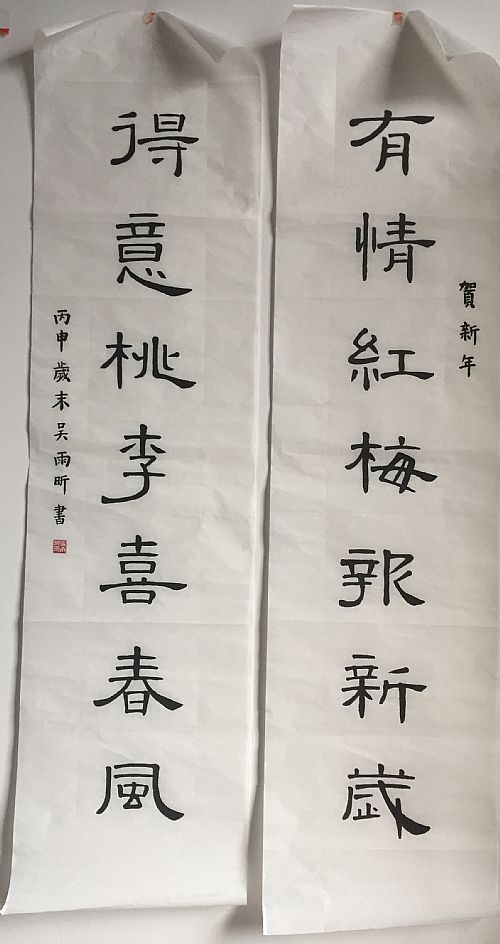 賀新年
有情紅梅報新歲
得意桃李喜春風
丙申歲末吴雨昕書